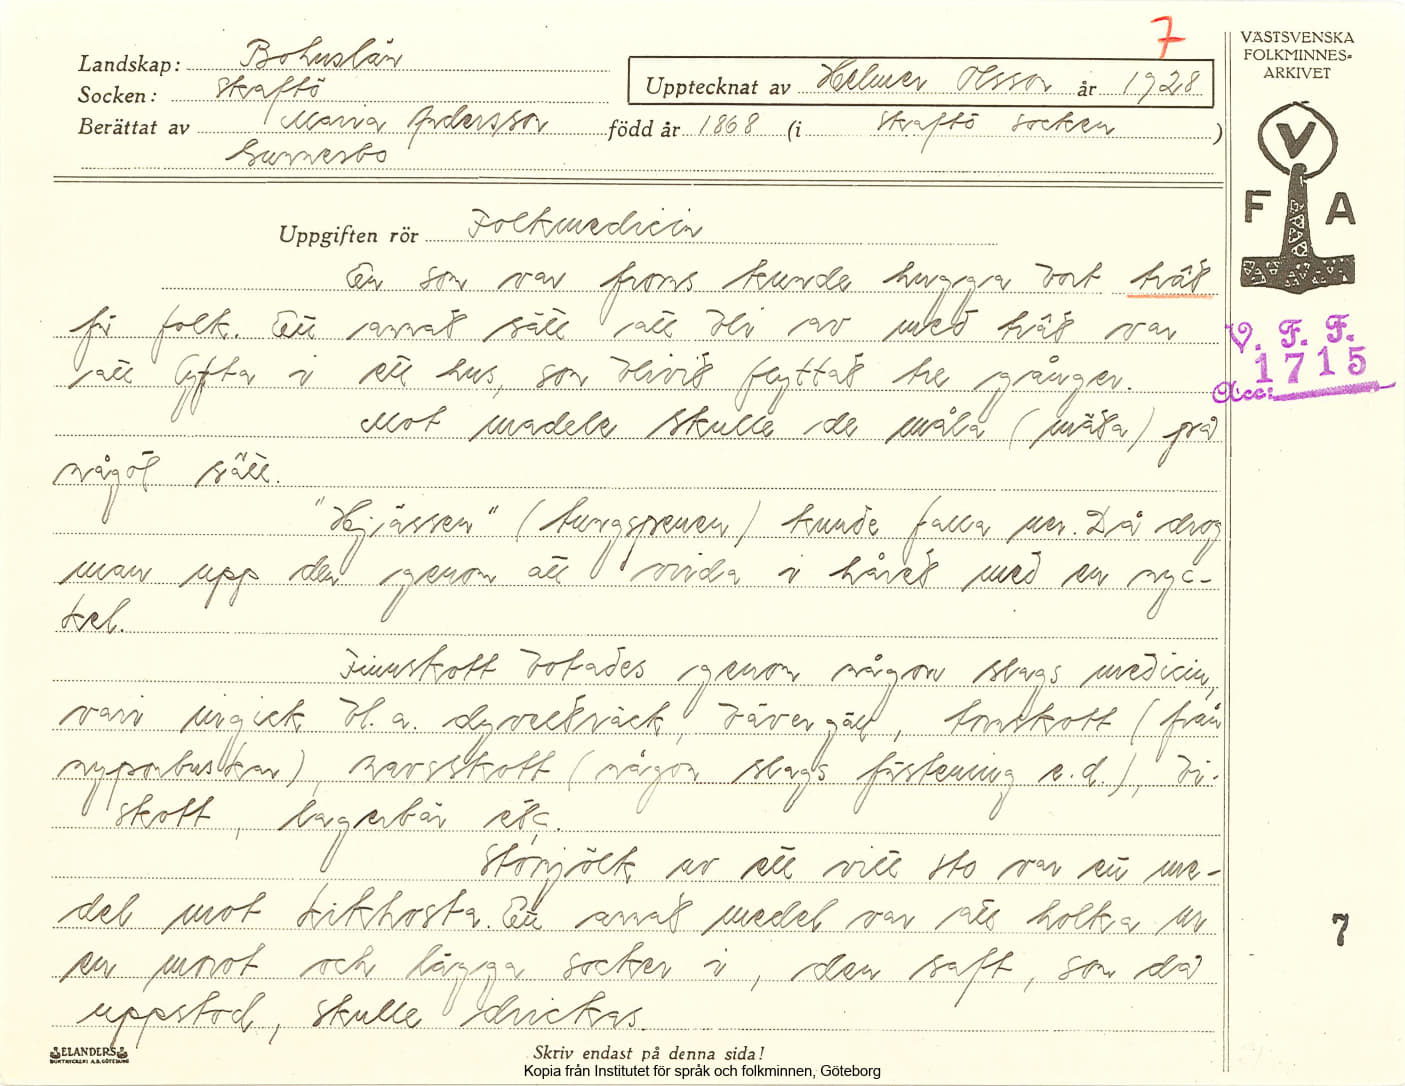 7
VÄSTSVENSKA
FOLKMINNES-
ARKIVET
Landskap: Bohuslän
Socken: Skaftö
Upptecknat av Helmer Olsson år 1928
Berättat av Maria Andersson född år 1868 (i Skaftö socken)
Gunnesbo
V
F A
Uppgiften rör Folkmedicin
En som var frons kunde hugga bort träš
för folk. Ett annat sätt att bli av med träš var
att lyfta i ett hus, som blivit flyttat tre gånger.
Mot madele skulle de måla (mäta) på
något sätt.
"Hjässen" (tungspenen) kunde falla ner. Då drog
man upp den genom att vrida i håret med en nyc-
kel.
Finnskott botades genom någon slags medicin,
vari ingick bl. a. dyvelsträck, bävergäll, tornskott (från
nyponbuskar), navsskott (någon slags förstening e.d.), bi-
skott, lagerbär etc.
Stomjölk av ett vitt sto var ett me-
del mot kikhosta. Ett annat medel var att holka ur
en morot och lägga socker i, den saft, som då
uppstod, skulle drickas.
V. F. F.
Acc: 1715
7
ELANDERS
BOKTRYCKERI A.B. GÖTEBORG
Skriv endast på denna sida!
Kopia från Institutet för språk och folkminnen, Göteborg